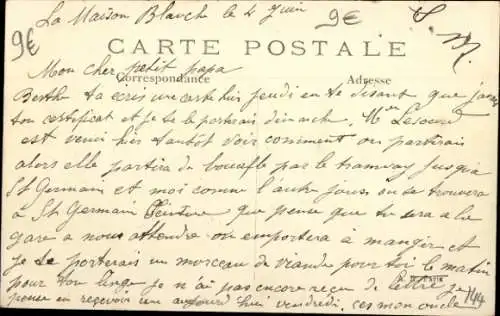 La Maison Blanche le 4 Juin
9€
9€
CARTE POSTALE
Mon cher petit papa
Correspondance
Adresse
Berthe ta écris une carte hier jeudi en te disant que
ton certificat et je te le porterais dimanche. Mme
est venu hier tantôt voir comment on partirais
alors elle partira de par le tramway jusqu'a
St Germain et moi comme l'autre jours on se trouvera
à St Germain Ceinture que pense que tu sera a la
gare a nous attendre on emportera à manger et
je te porterais un morceau de viande pour toi le matin
pour ton linge je n'ai pas encore reçu de lettre je
pense en reçevoir une aujourd'hui vendredi, ces mon oncle
144